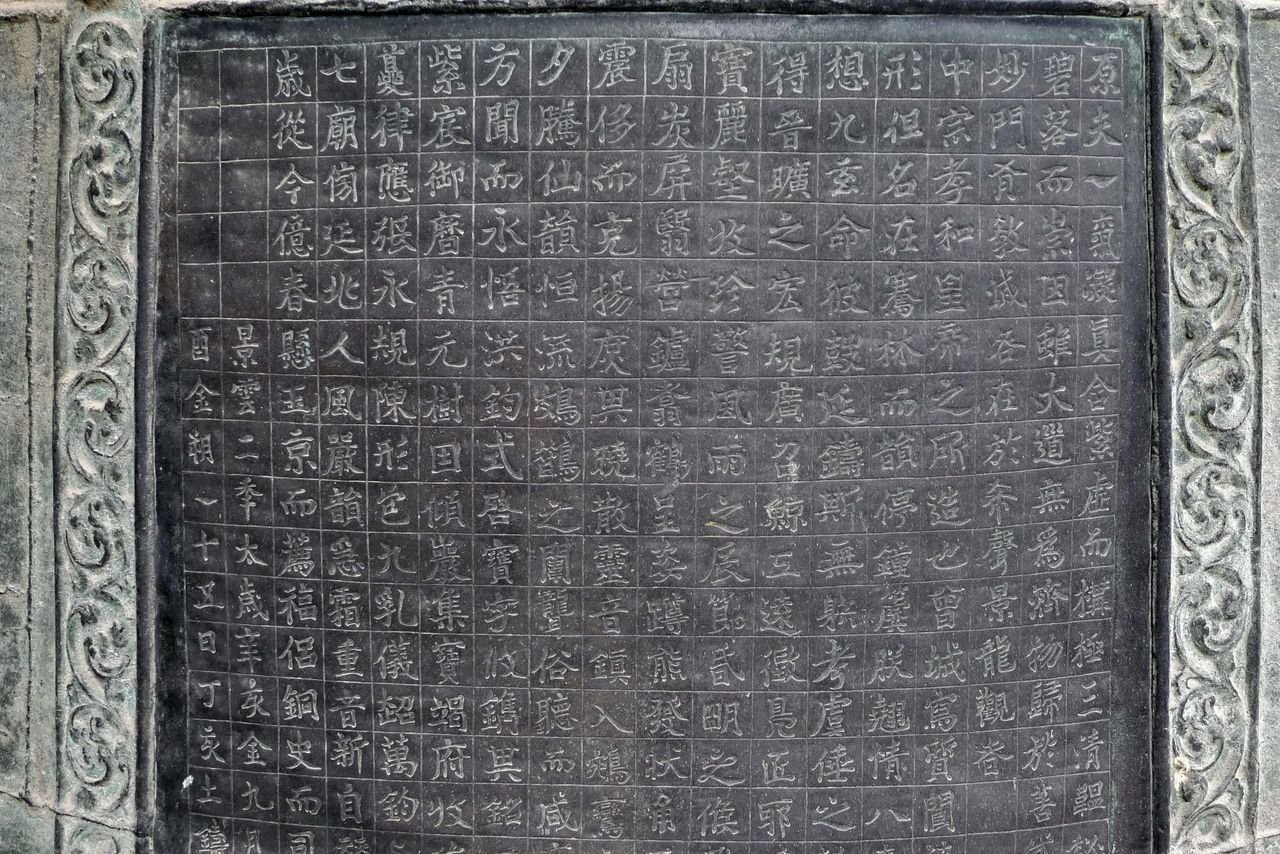 原夫一氣凝真含紫虛而構極三清韞
碧落而崇因雖大道無為濟物歸於善
妙門有教滅咎在於希聲景龍觀者
中宗孝和皇帝之所造也曾城寫質閬
形但名在騫林而韻停鐘虡朕翹情八
想九玄命彼鼓延鑄斯無射考虞倕之
得晉曠之宏規廣召鯨工遠徵鳧匠耶
寶麗壑收珍警風雨之辰節昏明之候
扇炭屏翳營鑪翥鶴呈姿蹲熊發狀角
震侈而克揚庶其曉散靈音鎮入鵷鸞
夕騰仙韻恒流鳷鵲之闈聾俗聽而咸
方聞而永悟洪鈞式啓寶字攸鐫其銘
紫宸御曆青元樹因傾巖集寶竭府收
夔律應張永規陳形包九乳儀超萬鈞
七廟傍延兆人風嚴韻急霜重音新自
歲從今億春懸玉京而薦福侶銅史而司
景雲二年太歲辛亥金九月
酉金朔一十五日丁亥土鑄